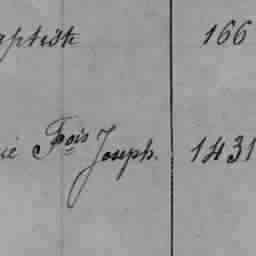 aptiste 166
ié Fois Joseph. 1431